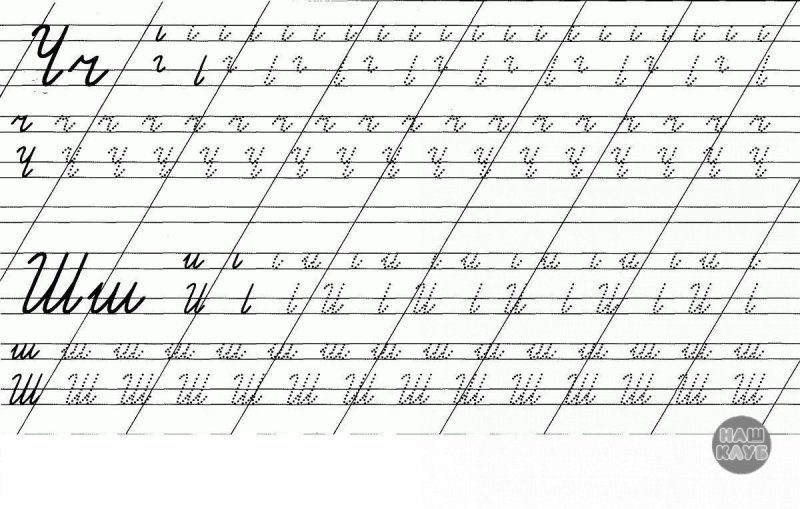 Чч
ч ч ч ч ч ч ч ч ч ч ч ч ч ч ч ч ч ч
Ч Ч Ч Ч Ч Ч Ч Ч Ч Ч Ч Ч Ч Ч Ч Ч Ч
Шш
и и и и и и и
И И И И И И
ш ш ш ш ш ш ш ш ш ш ш ш ш ш ш
Ш Ш Ш Ш Ш Ш Ш Ш Ш Ш Ш Ш Ш Ш
НАШ
КЛУБ